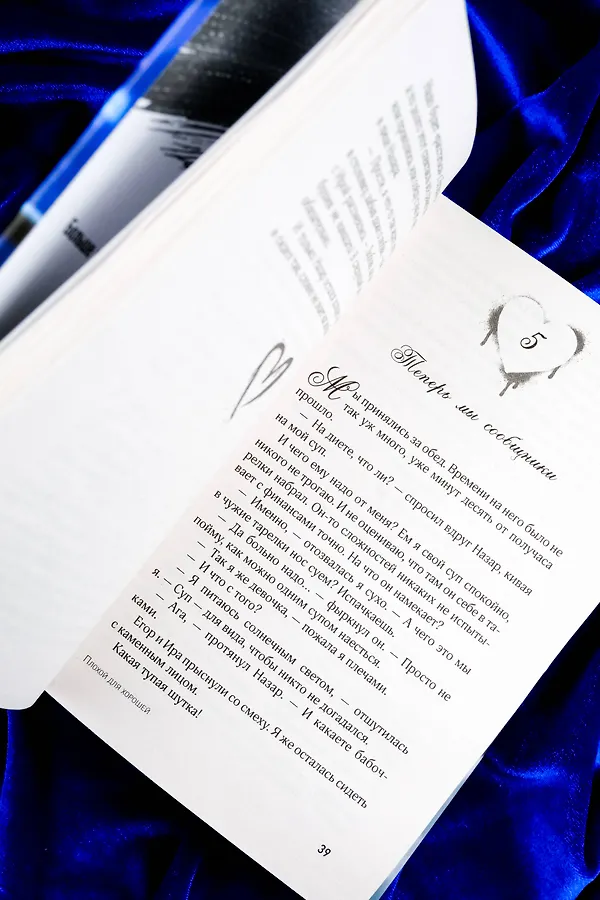 5
Теперь мы сообщники
Мы принялись за обед. Времени на него было не
так уж много, уже минут десять от получаса
прошло.
— На диете, что ли? — спросил вдруг Назар, кивая
на мой суп.
И чего ему надо от меня? Ем я свой суп спокойно,
никого не трогаю. И не оцениваю, что там он себе в та-
релки набрал. Он-то сложностей никаких не испыты-
вает с финансами точно. На что он намекает?
— Именно, — отозвалась я сухо. — А чего это мы
в чужие тарелки нос суем? Испачкаешь.
— Да больно надо... — фыркнул он. — Просто не
пойму, как можно одним супом наесться.
— Так я же девочка, — пожала я плечами.
— И что с того?
— Я питаюсь солнечным светом, — отшутилась
я. — Суп — для вида, чтобы никто не догадался.
— Ага, — протянул Назар. — И какаете бабоч-
ками.
Егор и Ира прыснули со смеху. Я же осталась сидеть
с каменным лицом.
Какая тупая шутка!
Плохой для хорошей
39